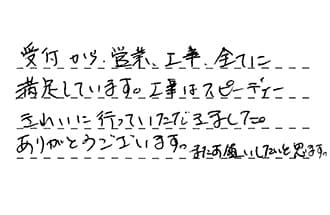 受付から、営業、工事、全てに
満足しています。工事はスピーディー
きれいに行っていただきました。
ありがとうございます。またお願いしたいと思います。